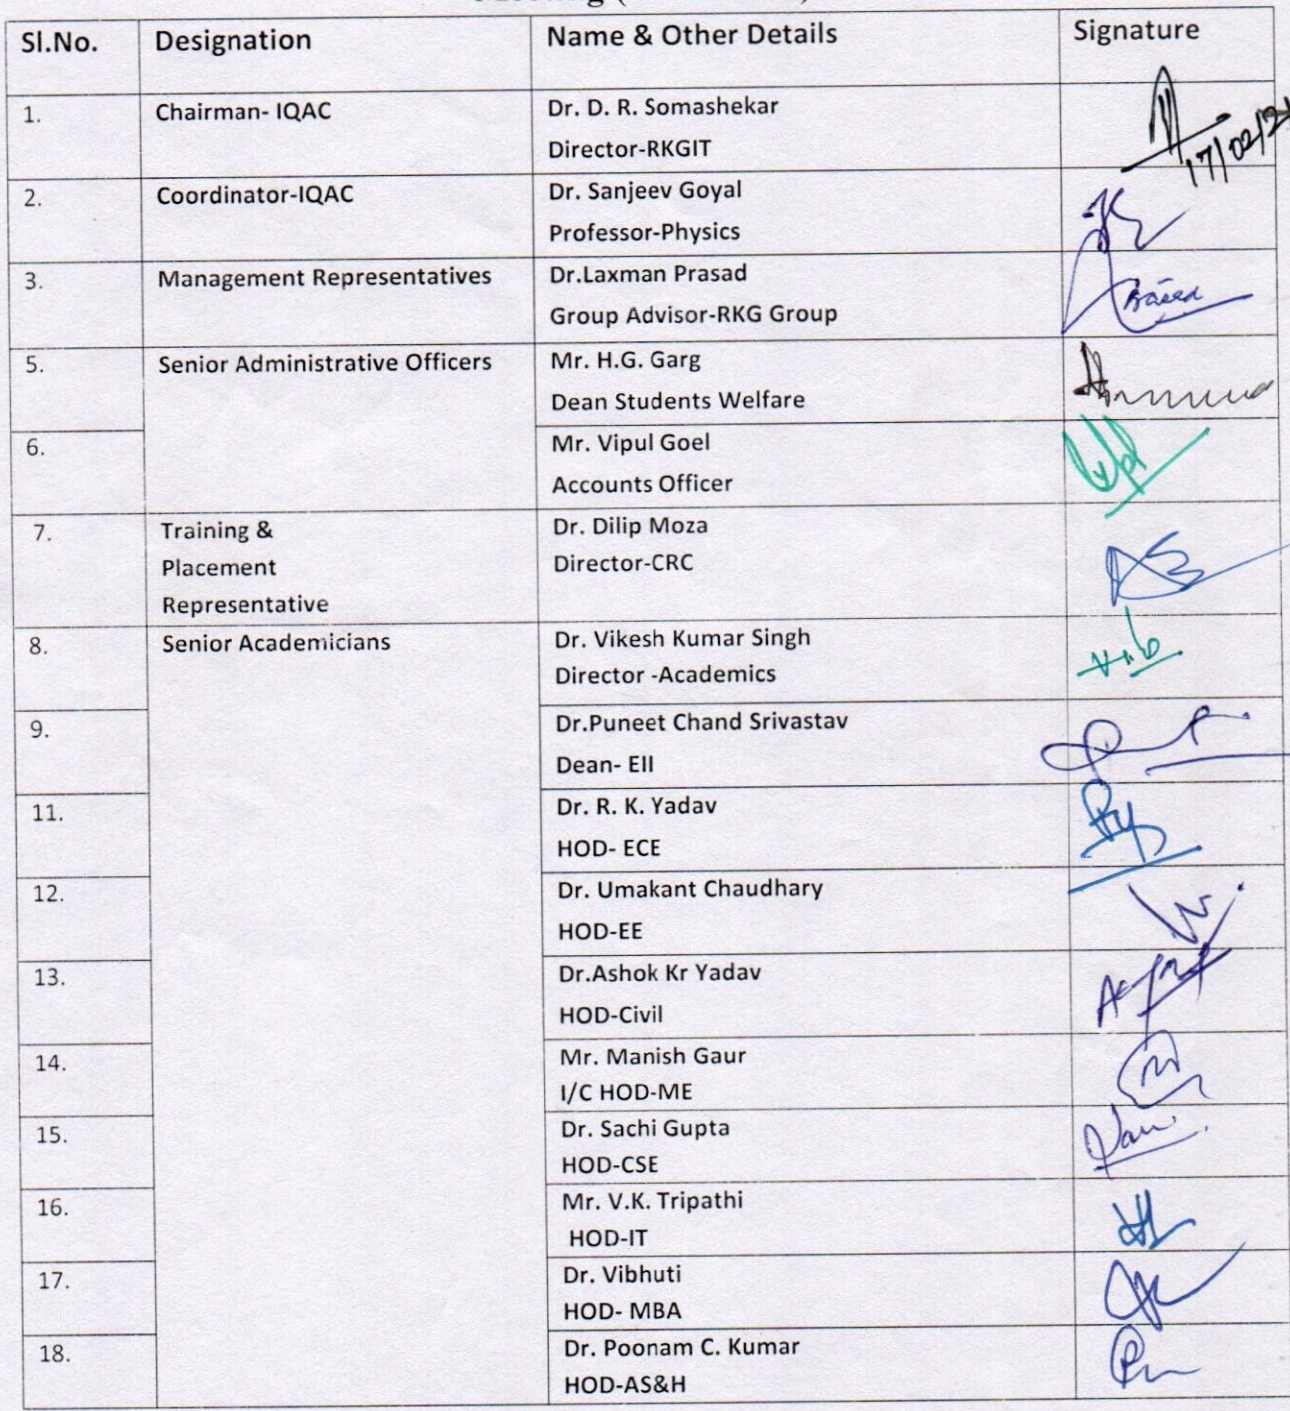 Sl.No. Designation Name & Other Details Signature
1. Chairman- IQAC Dr. D. R. Somashekar
Director-RKGIT
17/02/21
2. Coordinator-IQAC Dr. Sanjeev Goyal
Professor-Physics
3. Management Representatives Dr.Laxman Prasad
Group Advisor-RKG Group
5. Senior Administrative Officers Mr. H.G. Garg
Dean Students Welfare
6. Mr. Vipul Goel
Accounts Officer
7. Training & Dr. Dilip Moza
Placement Director-CRC
Representative
8. Senior Academicians Dr. Vikesh Kumar Singh
Director -Academics
9. Dr.Puneet Chand Srivastav
Dean- EII
11. Dr. R. K. Yadav
HOD- ECE
12. Dr. Umakant Chaudhary
HOD-EE
13. Dr.Ashok Kr Yadav
HOD-Civil
14. Mr. Manish Gaur
I/C HOD-ME
15. Dr. Sachi Gupta
HOD-CSE
16. Mr. V.K. Tripathi
HOD-IT
17. Dr. Vibhuti
HOD- MBA
18. Dr. Poonam C. Kumar
HOD-AS&H